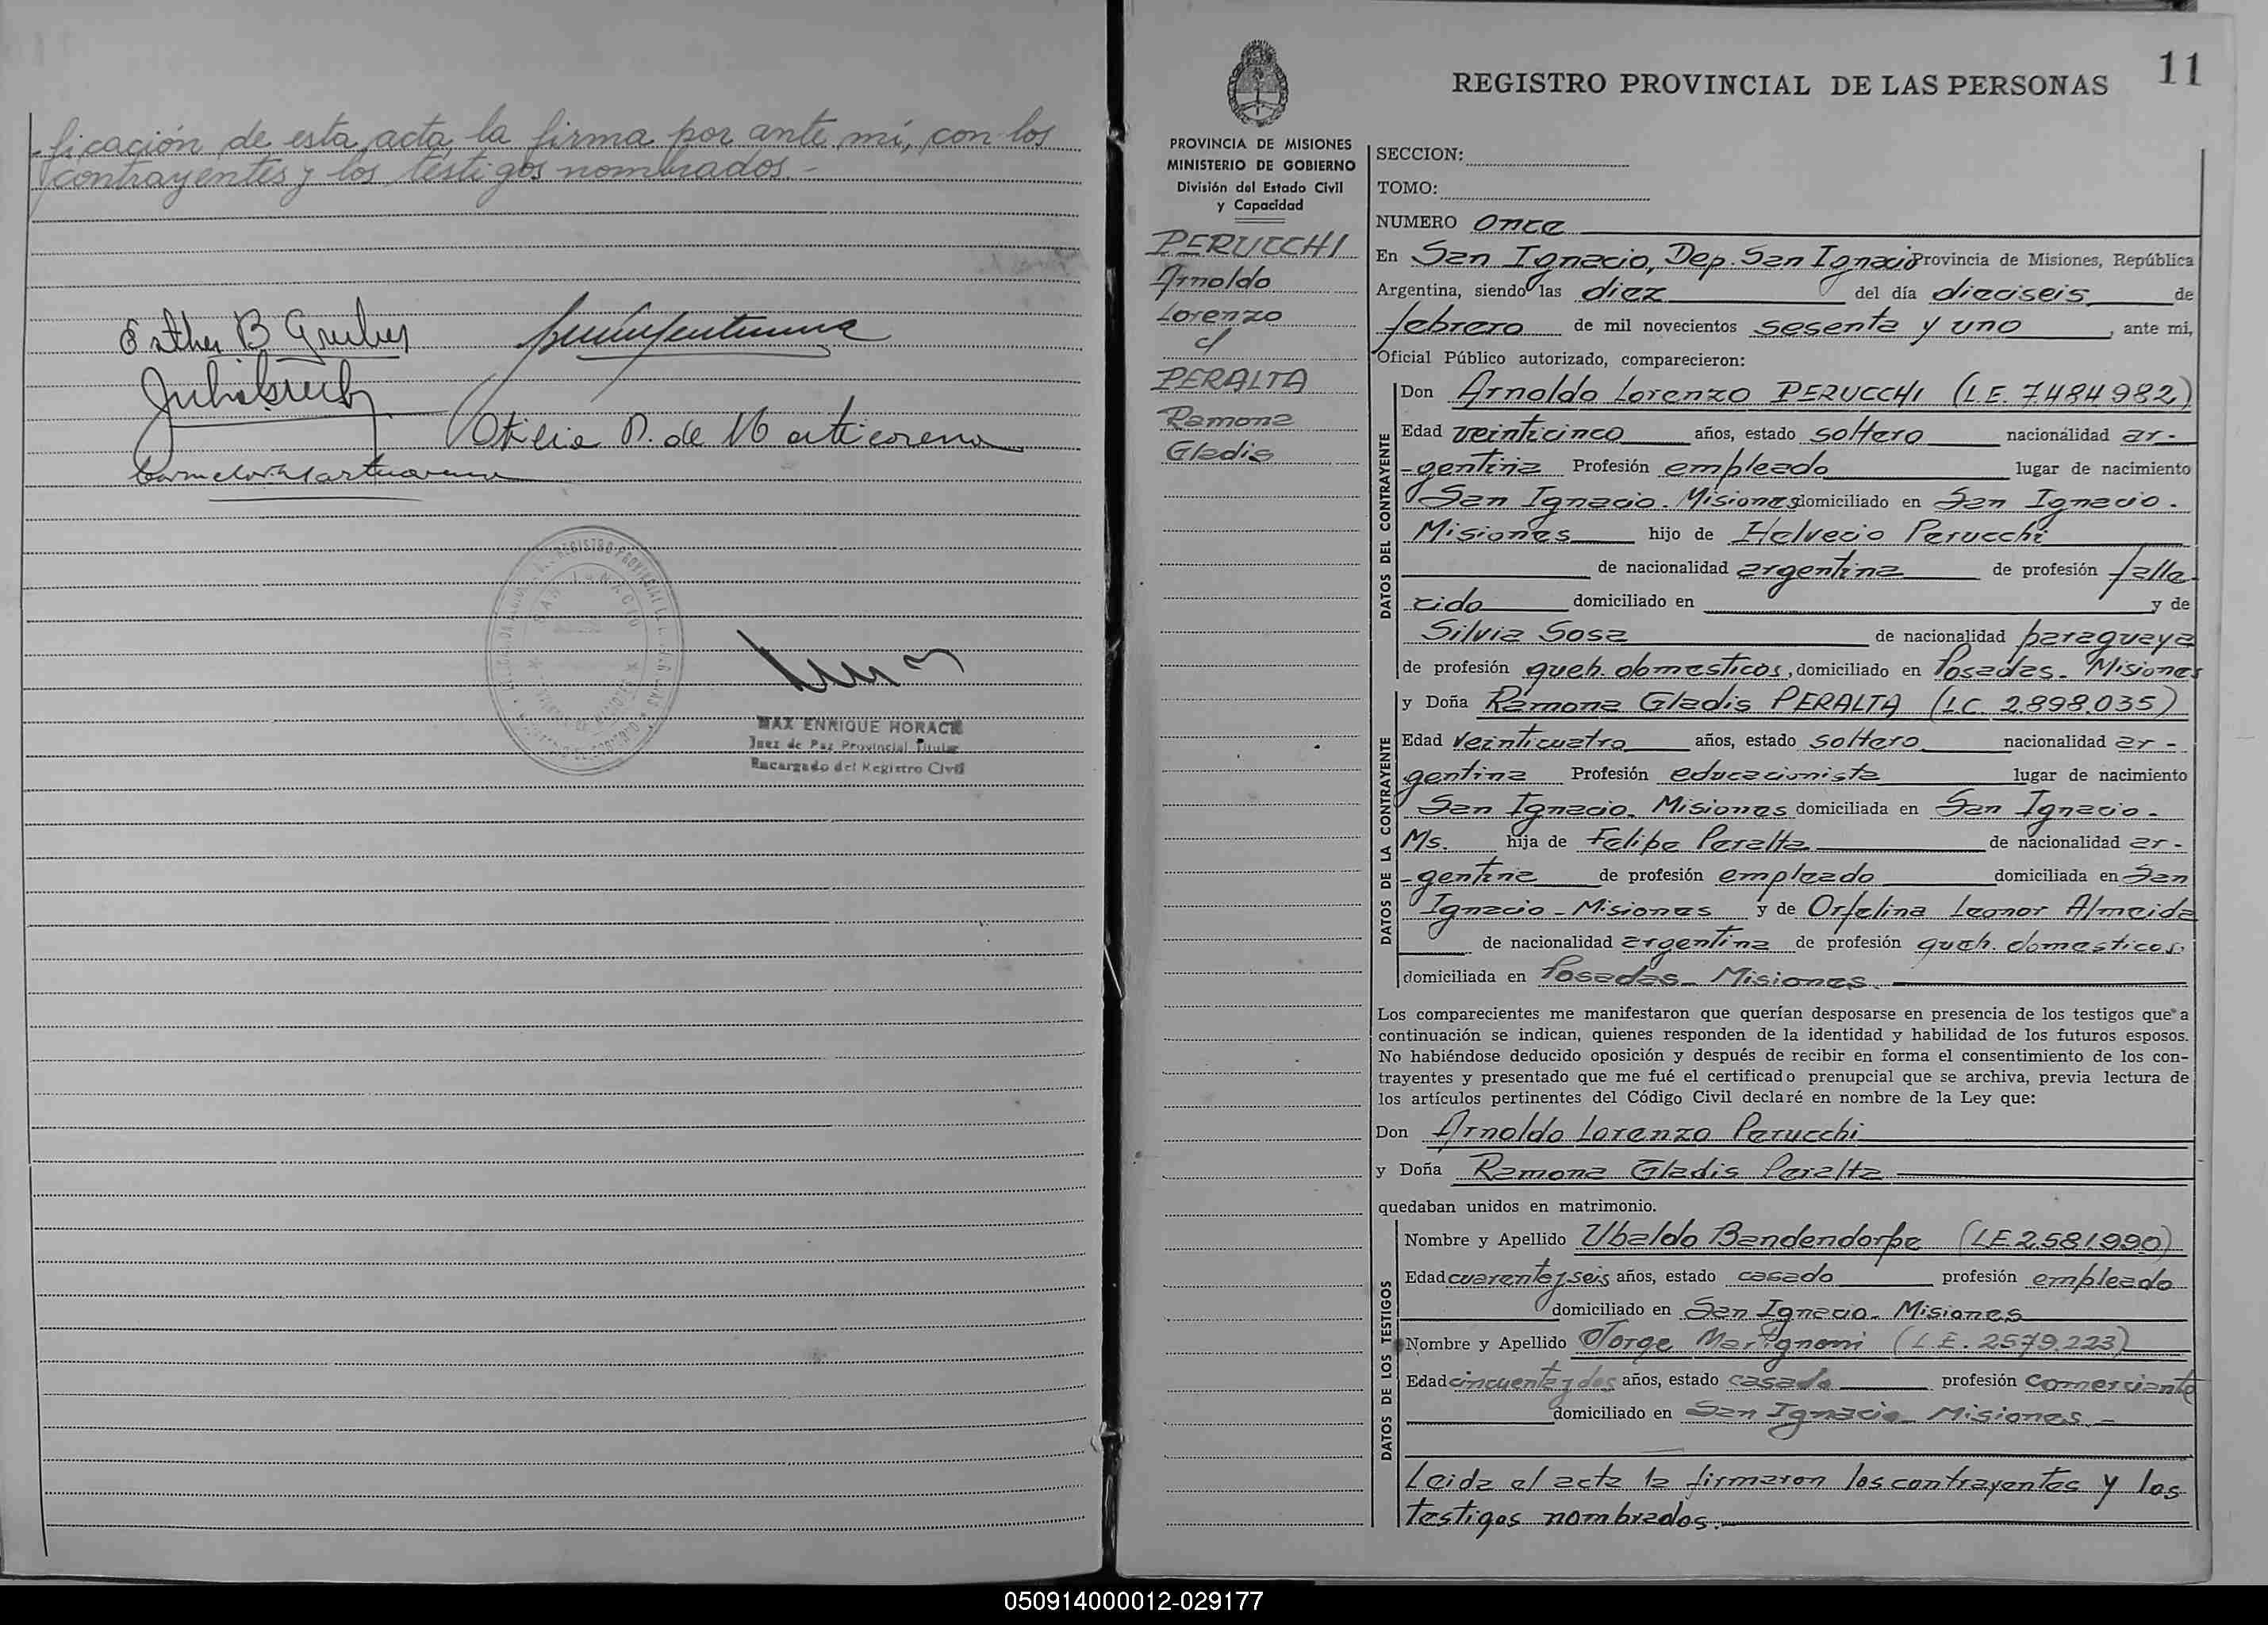 -ficación de esta acta la firma por ante mí, con los
contrayentes y los testigos nombrados.-
Esther B Gruber
Otilia P. de Marticorena
SAN IGNACIO
MAX ENRIQUE HORACE
Juez de Paz Provincial Titular
Encargado del Registro Civil
11
REGISTRO PROVINCIAL DE LAS PERSONAS
PROVINCIA DE MISIONES
MINISTERIO DE GOBIERNO
División del Estado Civil
y Capacidad
PERUCCHI
Arnoldo
Lorenzo
c/
PERALTA
Ramona
Gladis
SECCION:
TOMO:
NUMERO Once
En San Ignacio, Dep. San Ignacio Provincia de Misiones, República
Argentina, siendo las diez del día dieciseis de
febrero de mil novecientos sesenta y uno, ante mi,
Oficial Público autorizado, comparecieron:
DATOS DEL CONTRAYENTE
Don Arnoldo Lorenzo PERUCCHI (L.E. 7.484.982)
Edad veinticinco años, estado soltero nacionalidad ar-
-gentina Profesión empleado lugar de nacimiento
San Ignacio. Misiones domiciliado en San Ignacio.
Misiones hijo de Helvecio Perucchi
de nacionalidad argentina de profesión falle
cido domiciliado en y de
Silvia Sosa de nacionalidad paraguaya
de profesión queh. domesticos, domiciliado en Posadas. Misiones
DATOS DE LA CONTRAYENTE
y Doña Ramona Gladis PERALTA (L.C. 2.898.035)
Edad veinticuatro años, estado soltero nacionalidad ar-
gentina Profesión educacionista lugar de nacimiento
San Ignacio. Misiones domiciliada en San Ignacio.
Ms. hija de Felipe Peralta de nacionalidad ar-
-gentina de profesión empleado domiciliada en San
Ignacio - Misiones y de Orfelina Leonor Almeida
de nacionalidad argentina de profesión queh. domesticos.
domiciliada en Posadas - Misiones
Los comparecientes me manifestaron que querían desposarse en presencia de los testigos que a
continuación se indican, quienes responden de la identidad y habilidad de los futuros esposos.
No habiéndose deducido oposición y después de recibir en forma el consentimiento de los con-
trayentes y presentado que me fué el certificado prenupcial que se archiva, previa lectura de
los artículos pertinentes del Código Civil declaré en nombre de la Ley que:
Don Arnoldo Lorenzo Perucchi
y Doña Ramona Gladis Peralta
quedaban unidos en matrimonio.
DATOS DE LOS TESTIGOS
Nombre y Apellido Ubaldo Bandendorpe (L.E. 2.581.990)
Edad cuarenta y seis años, estado casado profesión empleado
domiciliado en San Ignacio - Misiones
Nombre y Apellido Jorge Martignoni (L.E. 2579.223)
Edad cincuenta y dos años, estado casado profesión comerciante
domiciliado en San Ignacio - Misiones -
Leida el acta la firmaron los contrayentes y los
testigos nombrados.
050914000012-029177